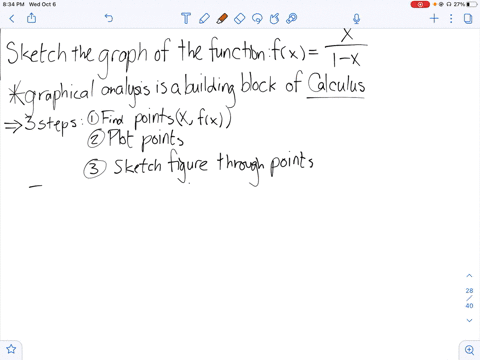 8:34 PM Wed Oct 6
27%
Sketch the graph of the function: f(x) = x/(1-x)
*graphical analysis is a building block of Calculus
⇒ 3 steps: ① Find points (x, f(x))
② Plot points
③ Sketch figure through points
28
/
40